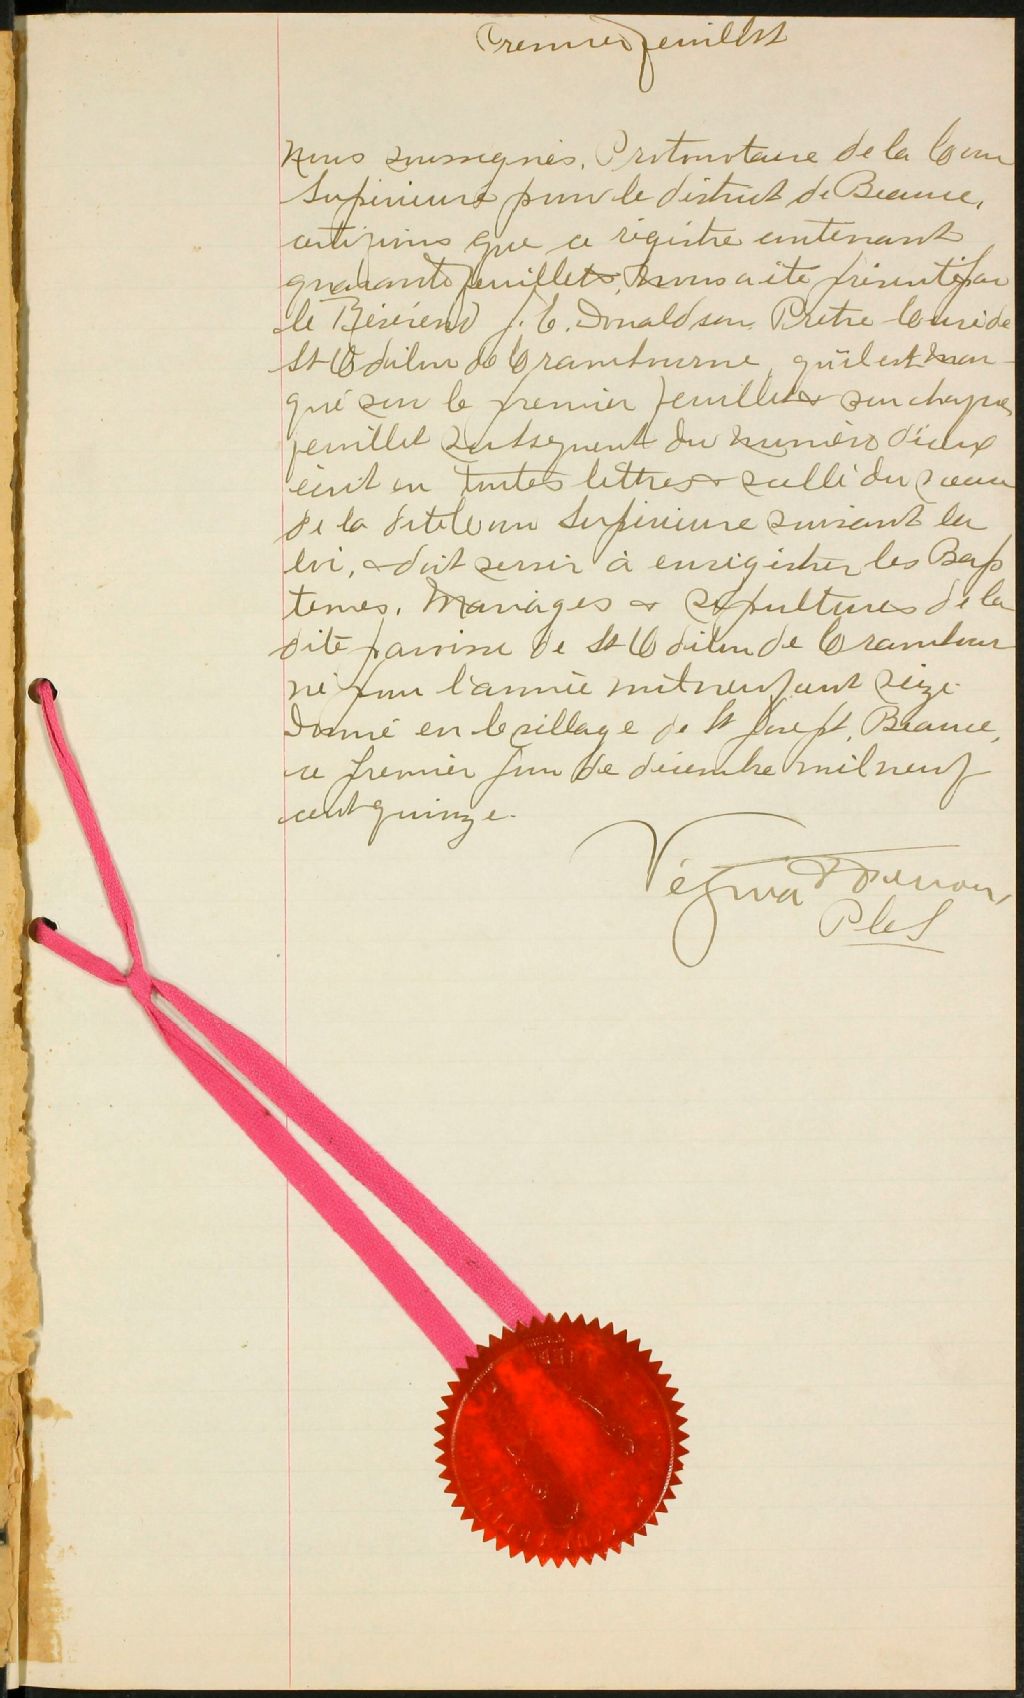 Premier feuillet
Nous soussignés, Protonotaire de la Cour
Supérieure pour le district de Beauce,
certifions que ce régistre contenant
quarante feuillets, nous a été présenté par
le Révérend J. E. Donaldson, Prêtre Curé de
St Odilon de Cranbourne, qu'il est mar-
qué sur le premier feuillet & sur chaque
feuillet subséquent du numéro d'iceux
écrit en toutes lettres & scellé du sceau
de la dite Cour Supérieure suivant la
loi, & doit servir à enrégistrer les Bap
temes, Mariages & Sépultures de la
dite paroisse de St Odilon de Cranbour
ne pour l'année mil neuf cent seize.
Donné en le village de St Joseph, Beauce,
ce premier jour de décembre mil neuf
cent quinze.
Vézina &
P C S